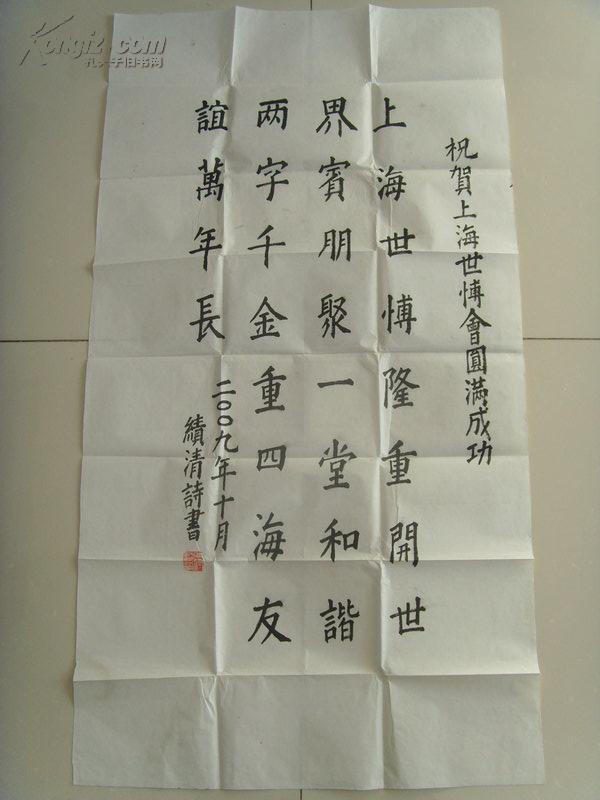 祝賀上海世愽會圓滿成功
上海世愽隆重開世
界賓朋聚一堂和諧
两字千金重四海友
誼萬年長
二〇〇九年十月
續清詩書
Kongfz.com
孔夫子旧书网